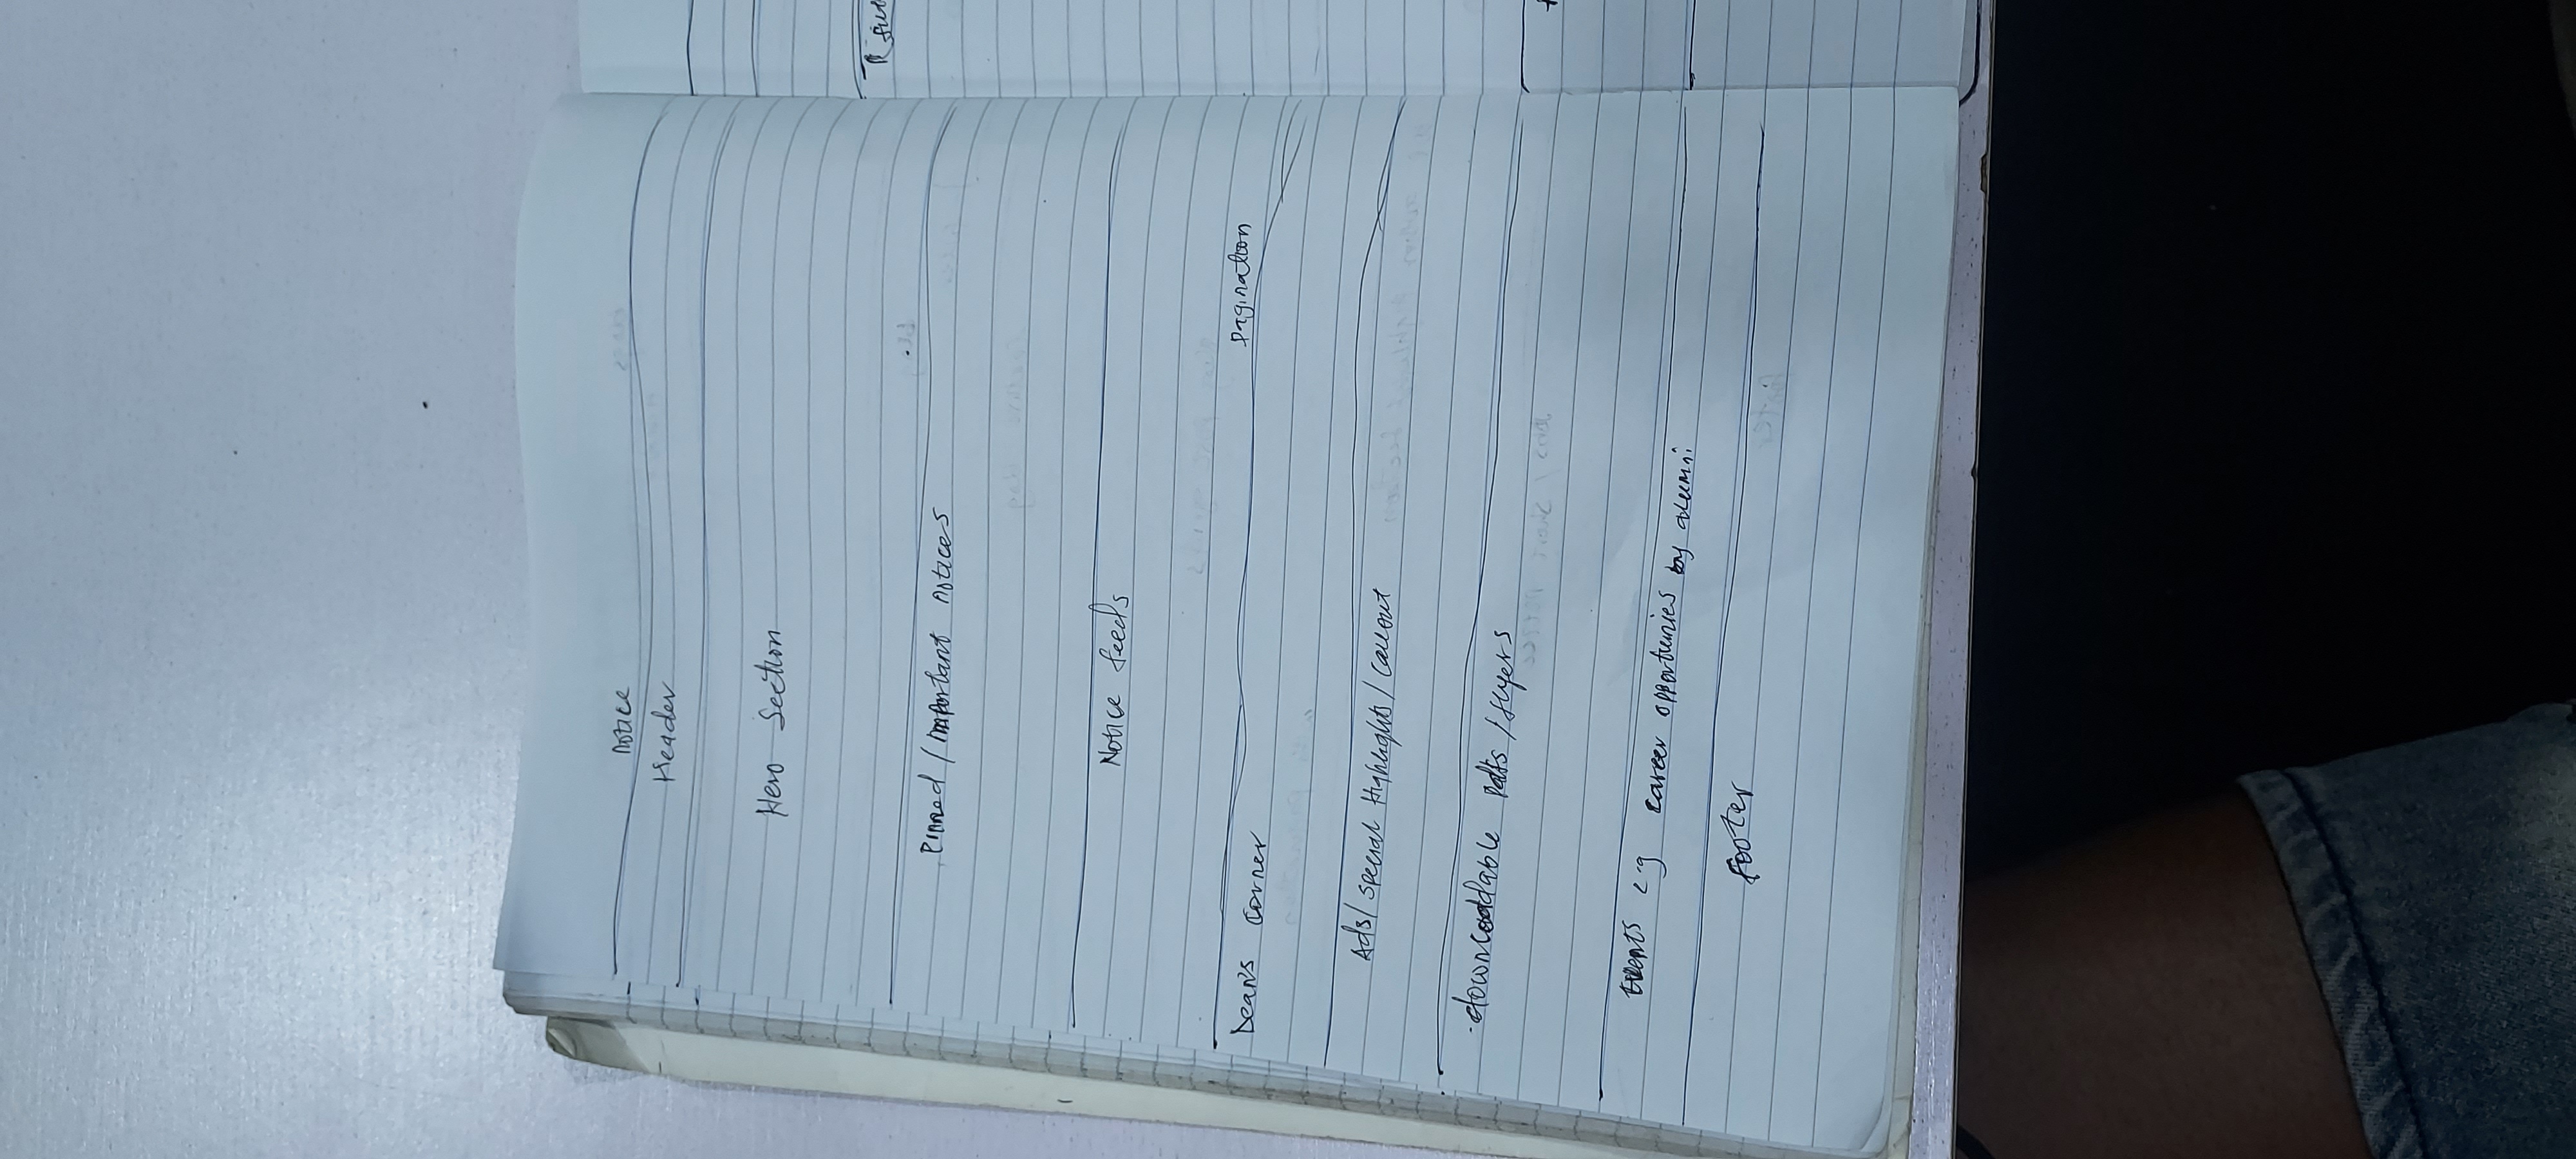 Notice
Header
Hero Section
Pinned / important notices
Notice feeds
Pagination
Dean's Corner
Ads / special Highlights / Callout
downloaddable Pdfs / flyers
Events e.g career opportunies by alumni
footer